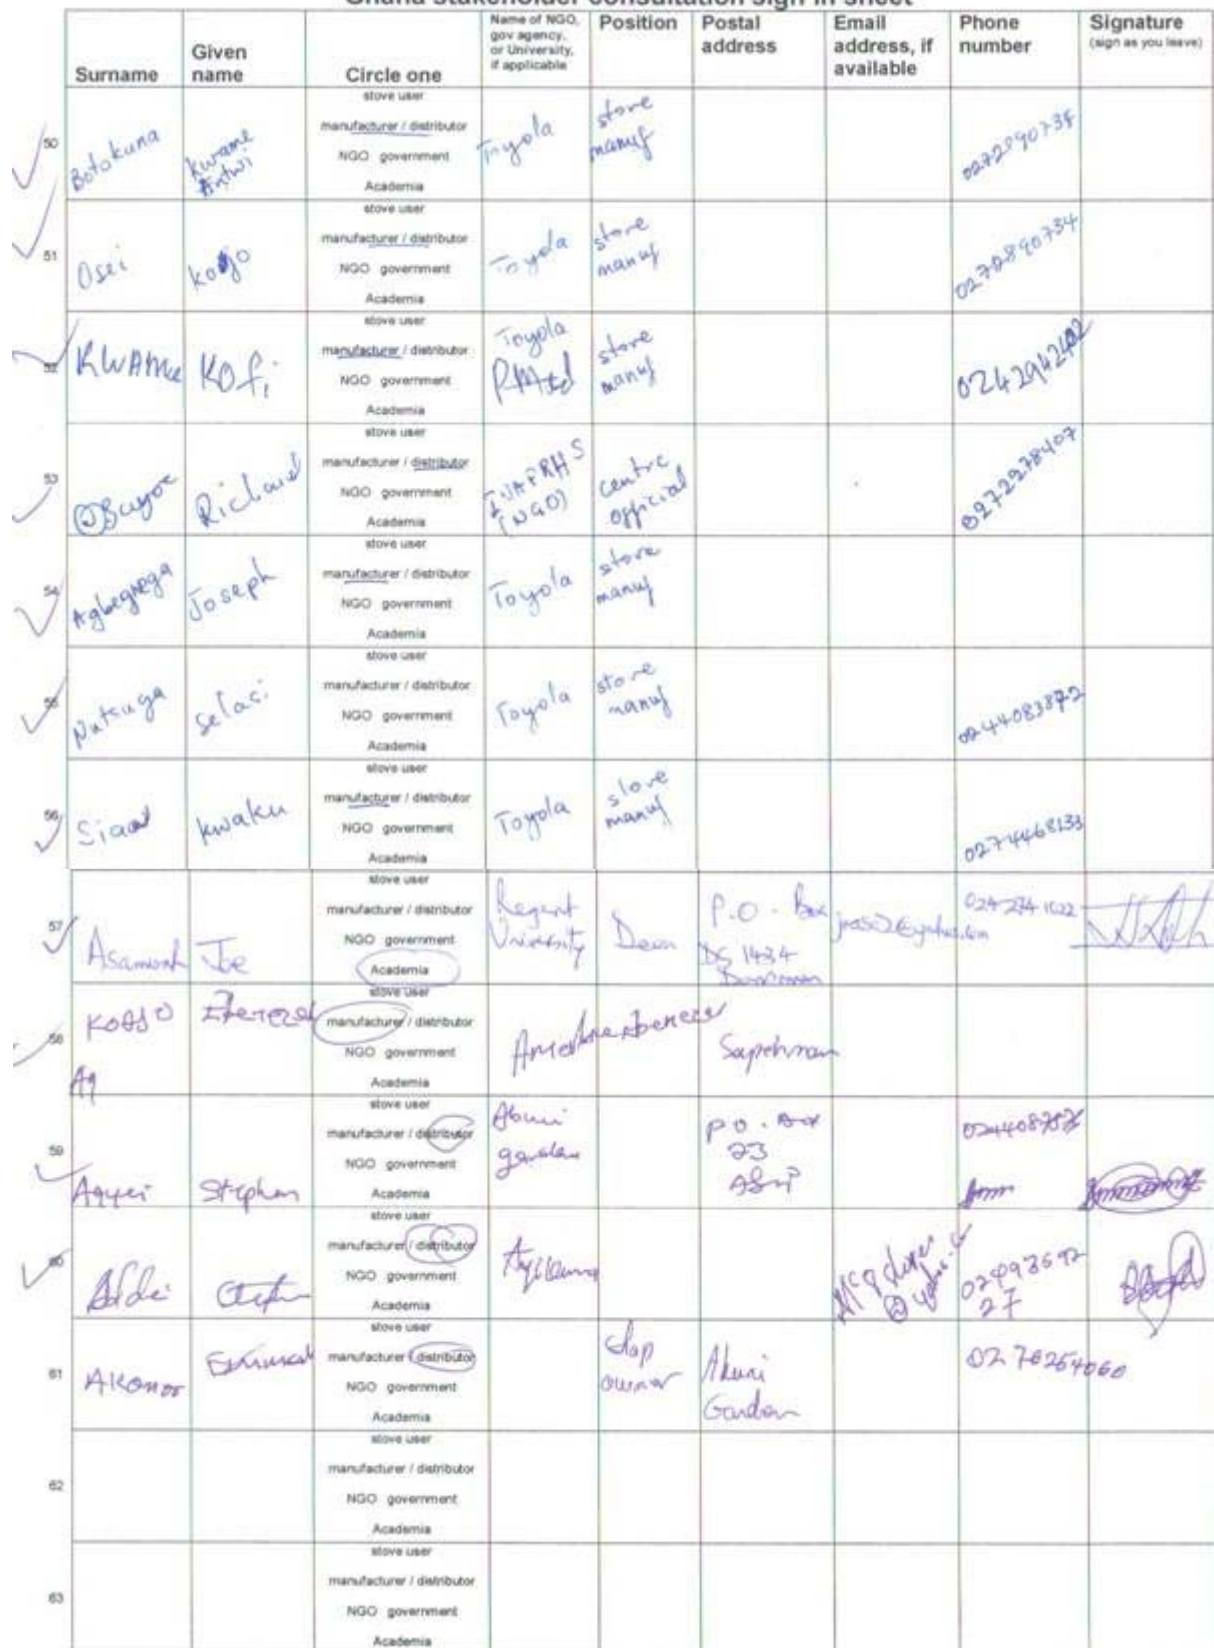 Ghana stakeholder consultation sign in sheet
Surname
Given name
Circle one
Name of NGO, gov agency, or University, if applicable
Position
Postal address
Email address, if available
Phone number
Signature (sign as you leave)
50
Botokuna
Kwame Antwi
stove user
manufacturer / distributor
NGO government
Academia
Toyola
stove manuf
51
Osei
Kojo
stove user
manufacturer / distributor
NGO government
Academia
Toyola
stove manuf
0272890734
52
KWAME
KOfi
stove user
manufacturer / distributor
NGO government
Academia
Toyola
stove manuf
53
Richard
stove user
manufacturer / distributor
NGO government
Academia
(NGO)
centre official
0272278407
54
Joseph
stove user
manufacturer / distributor
NGO government
Academia
Toyola
stove manuf
55
Nutsuga
Selasi
stove user
manufacturer / distributor
NGO government
Academia
Toyola
stove manuf
0244083872
56
kwaku
stove user
manufacturer / distributor
NGO government
Academia
Toyola
stove manuf
0274468133
57
Asamoah
Joe
stove user
manufacturer / distributor
NGO government
Academia
Regent University
Dean
P.O. Box
DS 1434
58
stove user
manufacturer / distributor
NGO government
Academia
59
Agyei
Stephen
stove user
manufacturer / distributor
NGO government
Academia
Aburi garden
P.O. Box
23
60
Addei
stove user
manufacturer / distributor
NGO government
Academia
61
AKonor
stove user
manufacturer / distributor
NGO government
Academia
shop owner
Aburi Garden
0270254060
62
stove user
manufacturer / distributor
NGO government
Academia
63
stove user
manufacturer / distributor
NGO government
Academia